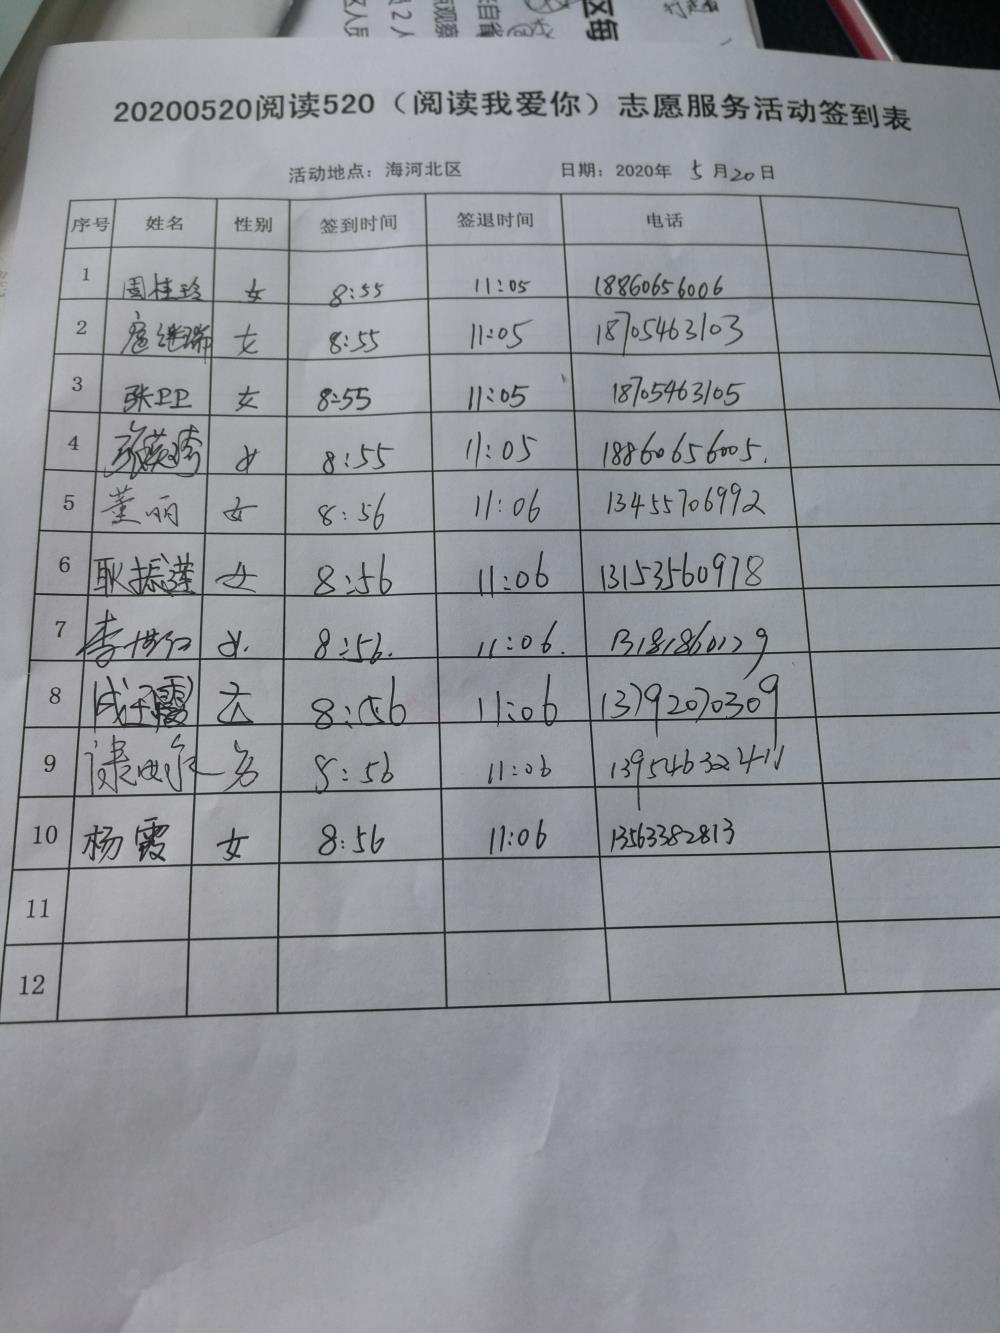 区人民
2人
观察
自省
区海
20200520阅读520（阅读我爱你）志愿服务活动签到表
活动地点：海河北区 日期：2020年 5月20日
序号 姓名 性别 签到时间 签退时间 电话
1 周桂玲 女 8:55 11:05 18860656006
2 扈继瑞 女 8:55 11:05 18705463103
3 张卫卫 女 8:55 11:05 18705463105
4 女 8:55 11:05 18860656005.
5 董丽 女 8:56 11:06 13455706992
6 耿振莲 女 8:56 11:06 13153560978
7 李 女. 8:56. 11:06. 13181860129
8 成玉霞 女 8:56 11:06 13792070309
9 男 8:56 11:06 13954632411
10 杨霞 女 8:56 11:06 13563382813
11
12